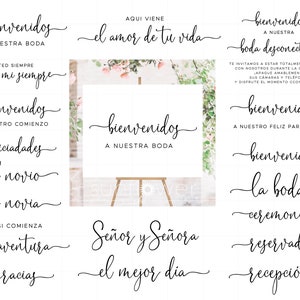 bienvenidos
A NUESTRA BODA
mi siempre
bienvenidos
novio
novia
SI COMIENZA
aventura
gracias
AQUI VIENE
el amor de tu vida
bienvenidos
A NUESTRA BODA
Señor y Señora
el mejor dia
bienvenidos
A NUESTRA
boda desconec
TE INVITAMOS A ESTAR TOTALME
CON NOSOTROS DURANTE LA
¡APAGUE AMABLEMEN
SUS CÁMARAS Y TELÉF
Y DISFRUTE EL MOMENTO
bienvenidos
A NUESTRO FELIZ PAR
bienvenidos
la boda
ceremon
reservad
recepció